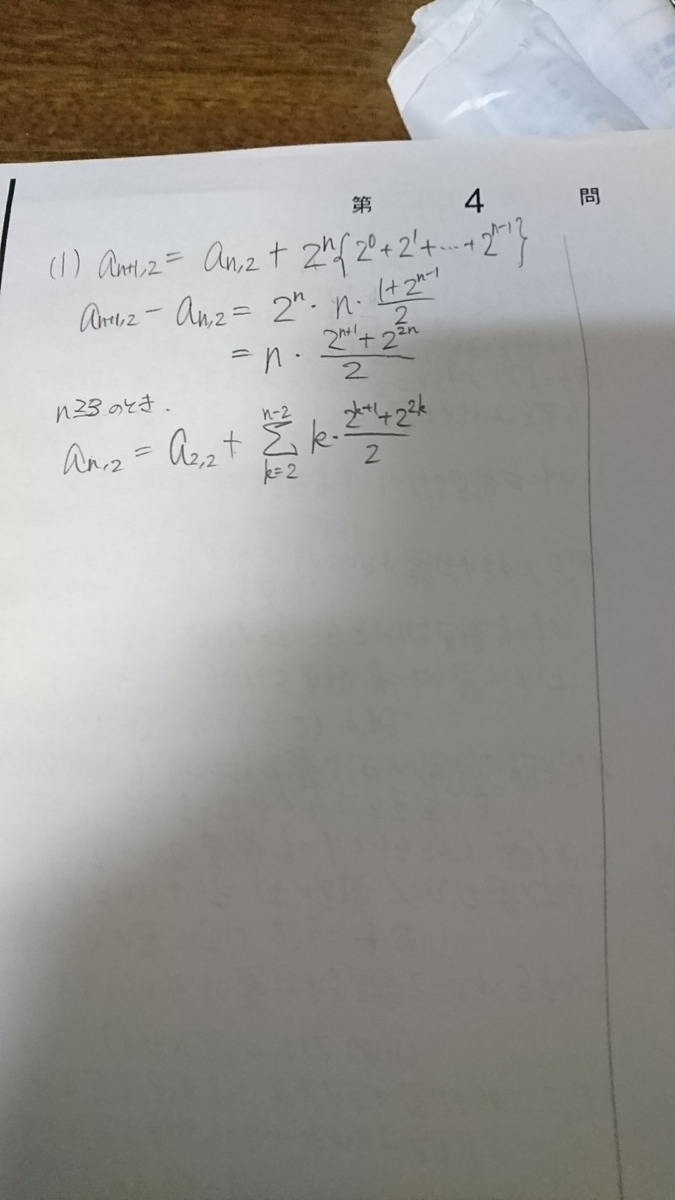 第 4 問
(1) a_{n+1,2} = a_{n,2} + 2^n{2^0+2^1+…+2^{n-1}}
a_{n+1,2} − a_{n,2} = 2^n · n · \frac{1+2^{n-1}}{2}
= n · \frac{2^{n+1}+2^{2n}}{2}
n≧3のとき.
a_{n,2} = a_{2,2} + \sum_{k=2}^{n-2} k · \frac{2^{k+1}+2^{2k}}{2}